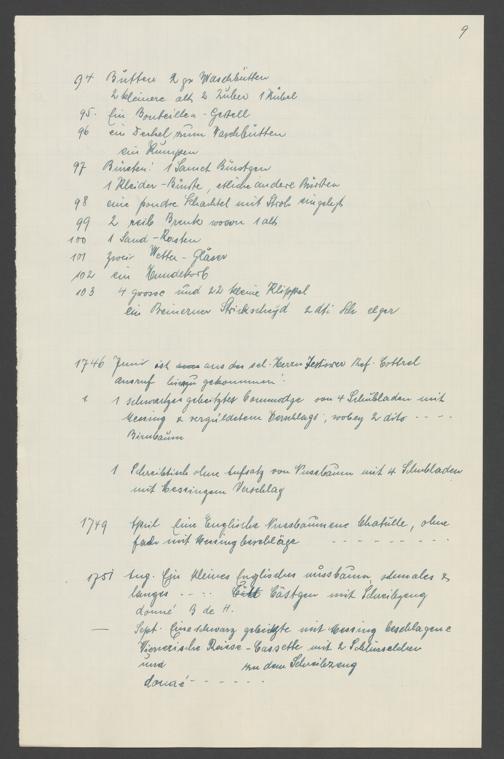 9
94 Bütten 2 gr Waschbütten
2 kleinere alt 2 Züber 1 Kübel
95. Ein Bouteillen-Gestell
96 ein Deckel zum Waschbütten
ein
97 Bürsten: 1 Samet Bürstgen
1 Kleider-Bürste, etliche andere Bürsten
98 eine Schachtel mit Stroh eingelegt
99 2 Brente wovon 1 alt
100 1 Sand-Kasten
101 zwei Wetter-Gläser
102 ein Hundekorb
103 4 grosse und 22 kleine Klippel
ein Beinerner 2 dti
1746 Juni ist aus des sel. Herrn Prof.
ausruf hinzu gekommen:
1 1 schwartz gebeitztes Commodge von 4 Schubladen mit
Messing & vergüldetem Beschlags, wobey 2 dito ----
Birnbaum
1 Schreibtisch ohne Aufsatz von Nussbaum mit 4 Schubladen
mit Messingem Verschlag
1749 April Eine Englische Nussbäumene Chatulle, ohne
mit Messingbeschläge --------
1751 Aug. Ein kleines Englisches nussbäum, schmales &
langes ---- Kästgen mit Schreibzeug
donné B de H.
— Sept. Eine schwarz gebeitzte mit Messing beschlagene
Reise-Cassette mit 2 Schlüsselchen
und zu dem Schreibzeug
donné ------